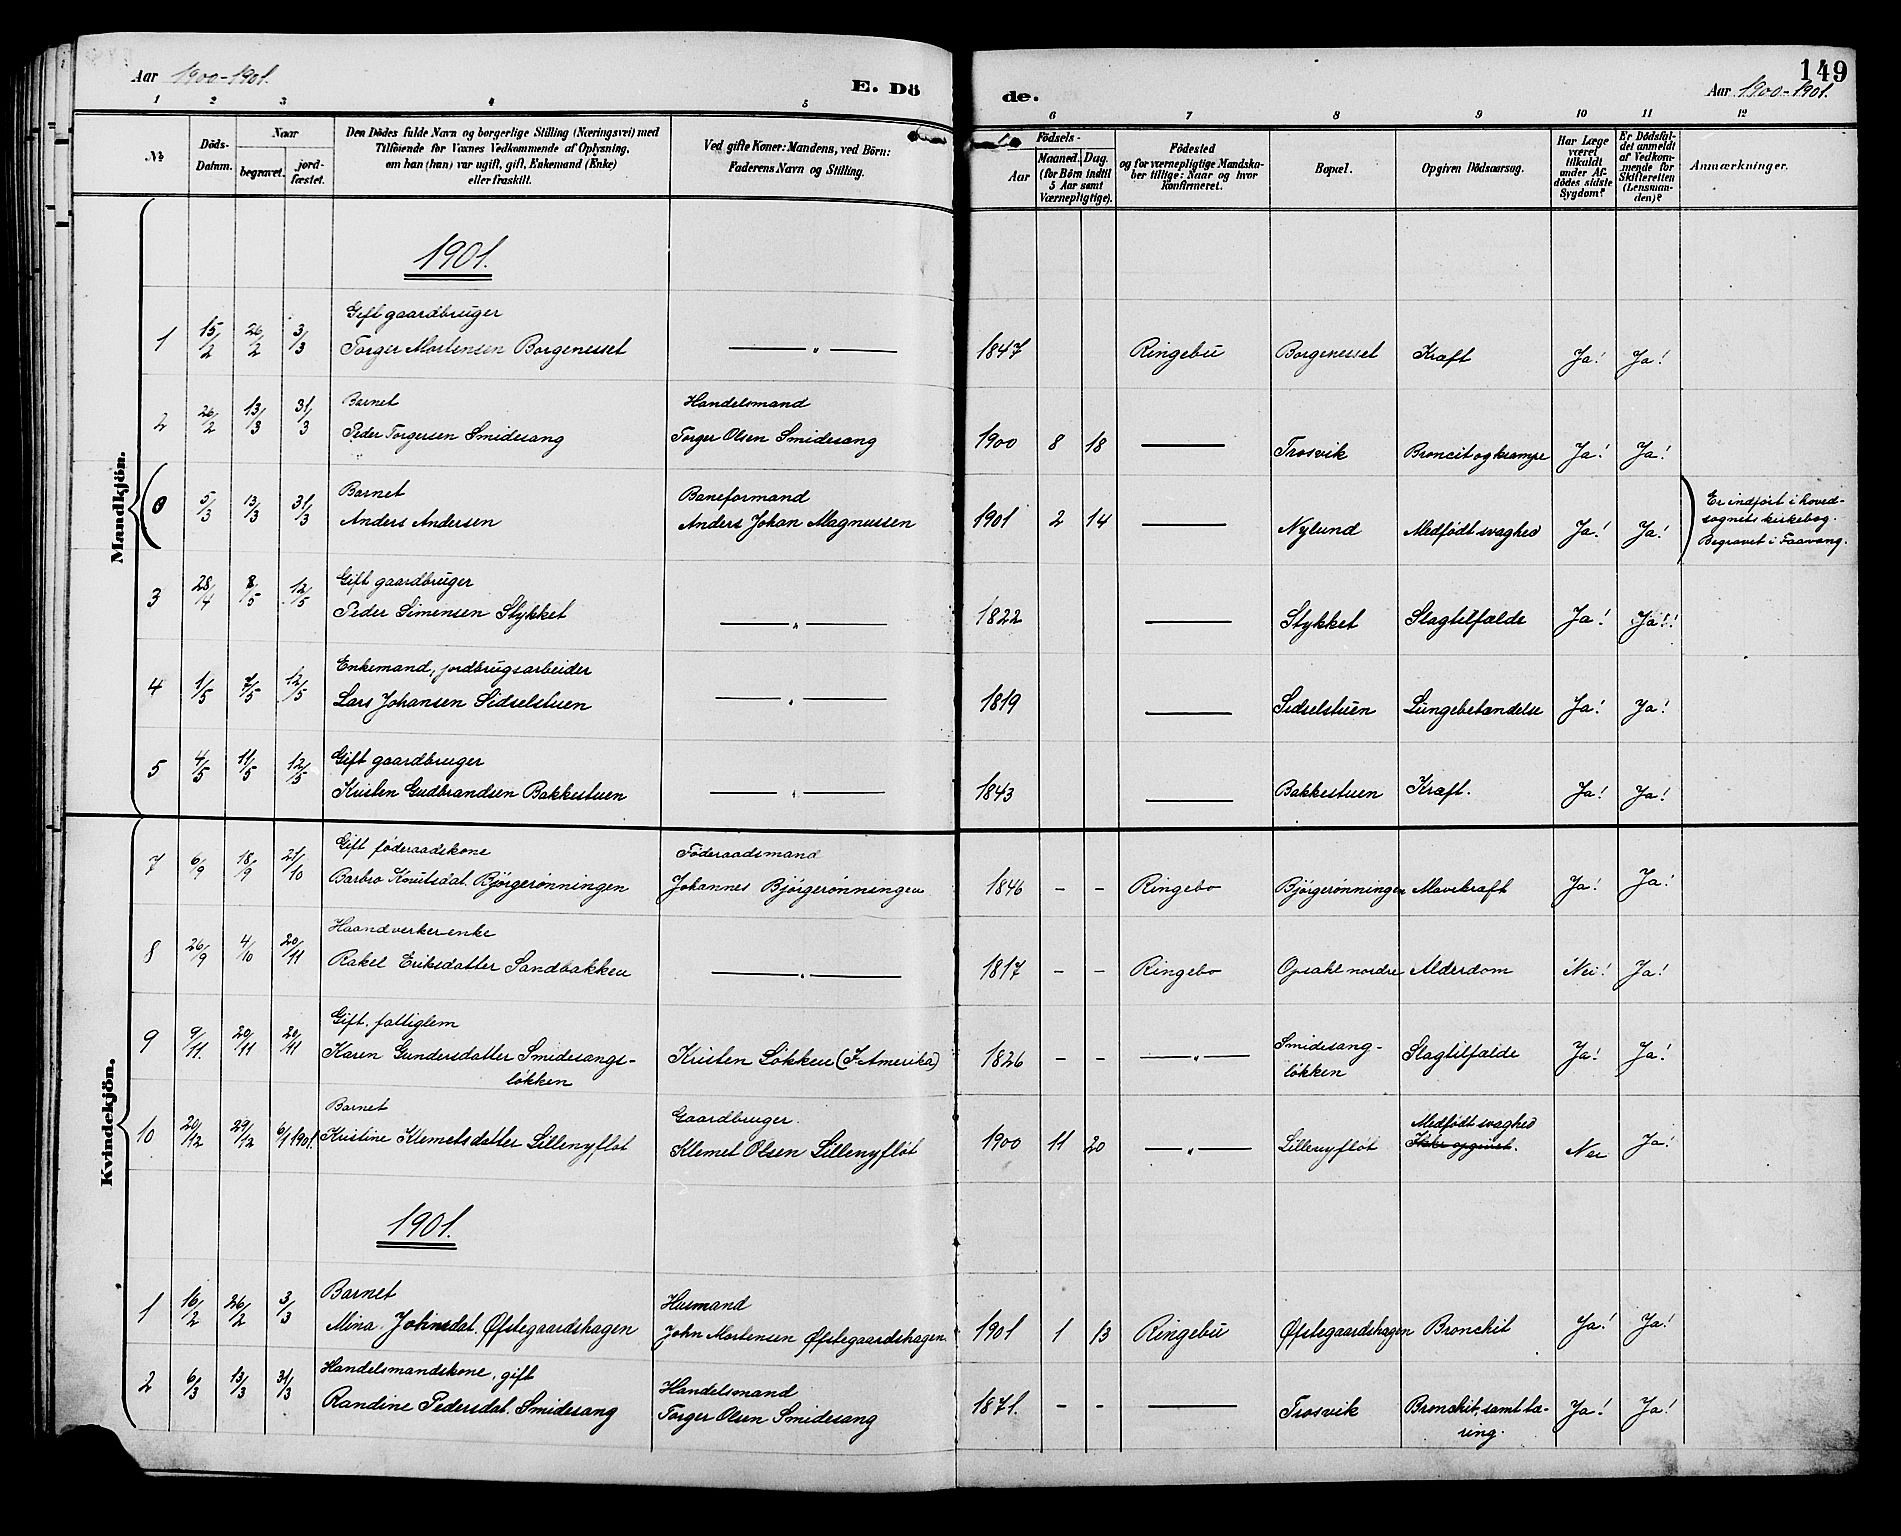 Aar 1900-1901.
E. Dö
de.
149
Aar 1900-1901.
1 2 3 4 5 6 7 8 9 10 11 12
No
Döds-Datum.
Naar
begravet.
jord-fæstet.
Den Dödes fulde Navn og borgerlige Stilling (Næringsvei) med
Tilföiende for Voxnes Vedkommende af Oplysning,
om han (hun) var ugift, gift, Enkemand (Enke)
eller fraskilt.
Ved gifte Koner: Mandens, ved Börn:
Faderens Navn og Stilling.
Födsels-
Aar
Maaned. Dag.
(for Börn indtil
5 Aar samt
Værnepligtige).
Födested
og for værnepligtige Mandska-
ber tillige: Naar og hvor
Konfirmeret.
Bopæl.
Opgiven Dödsaarsag.
Har Læge
været
tilkaldt
under Af-
dödes sidste
Sygdom?
Er Dödsfal-
det anmeldt
af Vedkom-
mende for
Skifteretten
(Lensman-
den)?
Anmærkninger.
Mandkjön.
1901.
Gift gaardbruger
1 15/2 26/2 3/3 Torger Mortensen Borgenesset — " — 1847 Ringebu Borgenesset Kræft Ja! Ja!
Barnet Handelsmand
2 26/2 13/3 31/3 Peder Torgersen Smidesang Torger Olsen Smidesang 1900 8 18 — Trosvik Broncit og krampe Ja! Ja!
Barnet Baneformand
(0 5/3 13/3 31/3 Anders Andersen Anders Johan Magnussen 1901 2 14 — Nylund Medfödt svaghed Ja! Ja!
Er indfört i hoved-
sognets kirkebog.
Begravet i Faavang.
Gift gaardbruger
3 28/4 8/5 12/5 Peder Simensen Stykket — " — 1822 — Stykket Slagtilfælde Ja! Ja!!
Enkemand, jordbrugsarbeider
4 1/5 7/5 12/5 Lars Johansen Sidselstuen — " — 1819 — Sidselstuen Lungebetændelse Ja! Ja!
Gift gaardbruger
5 4/5 11/5 12/5 Kristen Gudbrandsen Bakkestuen — " — 1843 — Bakkestuen Kræft. Ja! Ja!
Kvindekjön.
Gift føderaadskone Føderaadsmand
7 6/9 18/9 21/10 Barbro Knutsdat. Bjørgerønningen Johannes Bjørgerønningen 1846 - - Ringebo Bjørgerønningen Mavekræft Ja! Ja!
Haandverkerenke
8 26/9 4/10 20/11 Rakel Eriksdatter Sandbakken — " — 1817 - - Ringebo Opsahl nordre Alderdom Nei! Ja!
Gift, fattiglem
9 9/11 20/11 20/11 Karen Gundersdatter Smidesangs-
løkken Kristen Løkken (I Amerika) 1826 - - — " — Smidesang-
løkken Slagtilfælde Ja! Ja!
Barnet Gaardbruger.
10 20/12 29/12 6/1 1901. Kristine Klemetsdatter Lillenyfløt Klemet Olsen Lillenyfløt 1900 11 20 — " — Lillenyfløt Medfødt svaghed
Ikke opgivet. Nei Ja!
1901.
Barnet Husmand
1 16/2 26/2 3/3 Mina Johnsdat. Øfstegaardshagen John Mortensen Øfstegaardshagen. 1901 1 13 Ringebu Øfstegaardshagen Bronchit Ja! Ja!
Handelsmandskone, gift Handelsmand
2 6/3 13/3 31/3 Randine Pedersdat. Smidesang Torger Olsen Smidesang 1871. - - — Trosvik Bronchit, samt tæ-
ring. Ja! Ja!